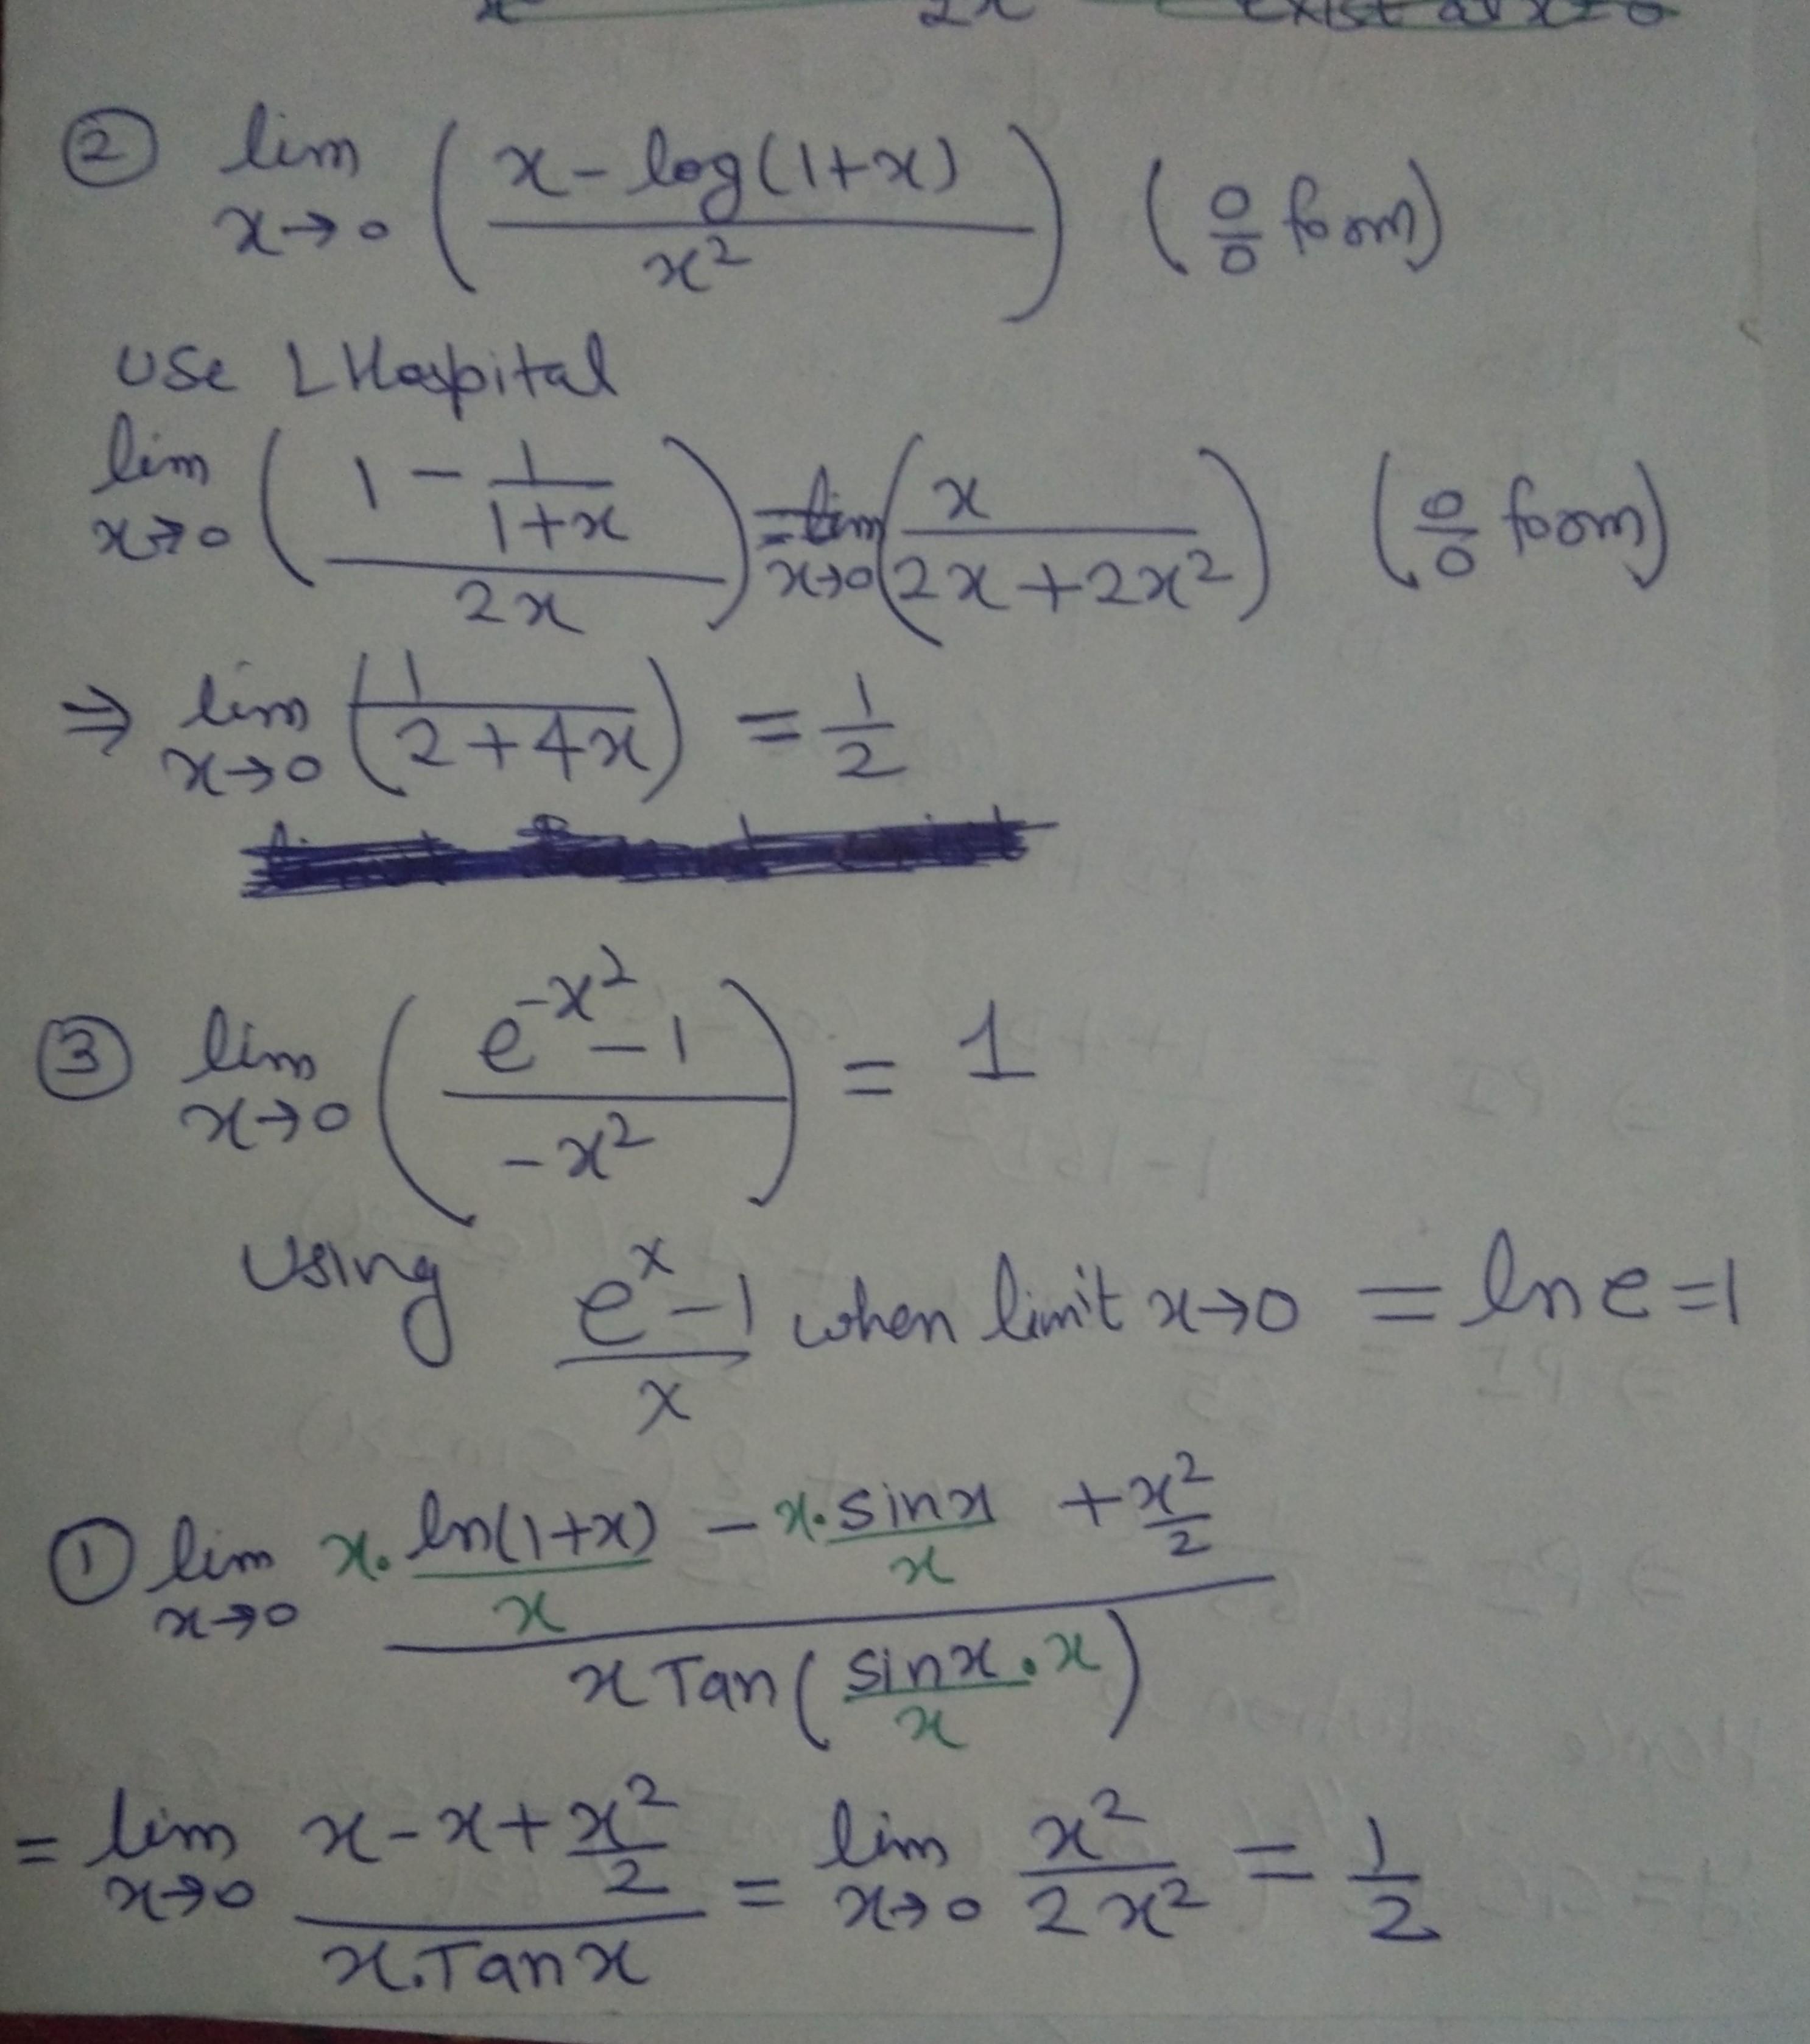 2x exist at x=0
② lim x→0 ( (x - log(1+x)) / x² ) (0/0 form)
Use L Hospital
lim x→0 ( (1 - 1/(1+x)) / 2x ) = lim x→0 ( x / (2x + 2x²) ) (0/0 form)
⇒ lim x→0 ( 1 / (2+4x) ) = 1/2
③ lim x→0 ( (e^(-x²) - 1) / -x² ) = 1
Using (e^x - 1) / x when limit x→0 = ln e = 1
① lim x→0 ( x. ln(1+x)/x - x. sinx/x + x²/2 ) / ( x Tan( sinx/x . x ) )
= lim x→0 ( x - x + x²/2 ) / ( x.Tanx ) = lim x→0 x² / 2x² = 1/2